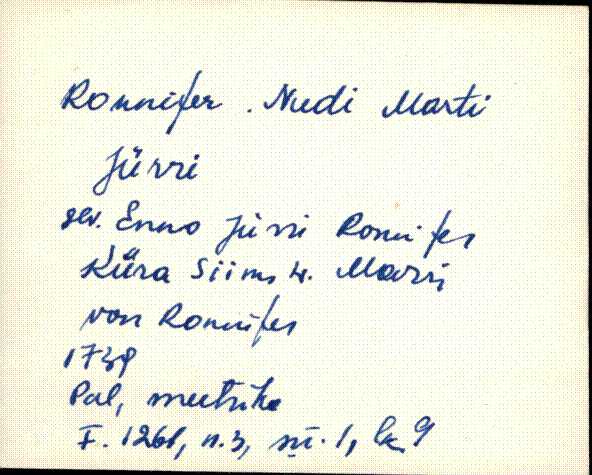 Ronnifer. Nudi Marti
Jürri
gev. Enno Jürri Ronnifer
Küra Siims w. Marri
von Ronnifer
1739
Pal, meetrika
F. 1261, n. 3, sü. 1, lk. 9